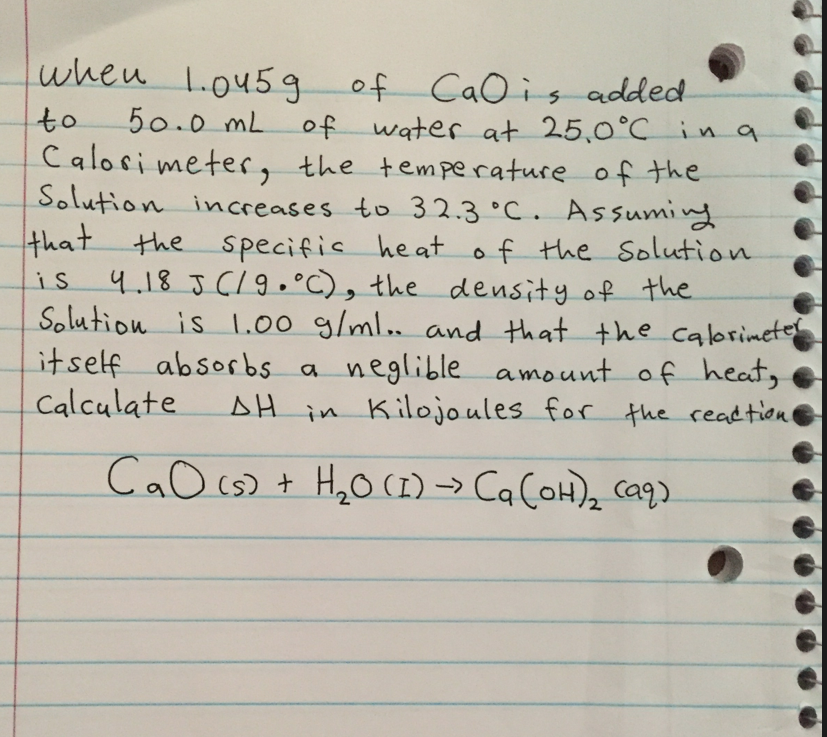 When 1.045g of CaO is added
to 50.0 mL of water at 25.0°C in a
Calorimeter, the temperature of the
Solution increases to 32.3 °C. Assuming
that the specific heat of the Solution
is 4.18 J C/g.°C), the density of the
Solution is 1.00 g/ml.. and that the calorimeter
itself absorbs a neglible amount of heat,
Calculate ΔH in Kilojoules for the reaction
CaO (s) + H₂O (I) → Ca(OH)₂ (aq)